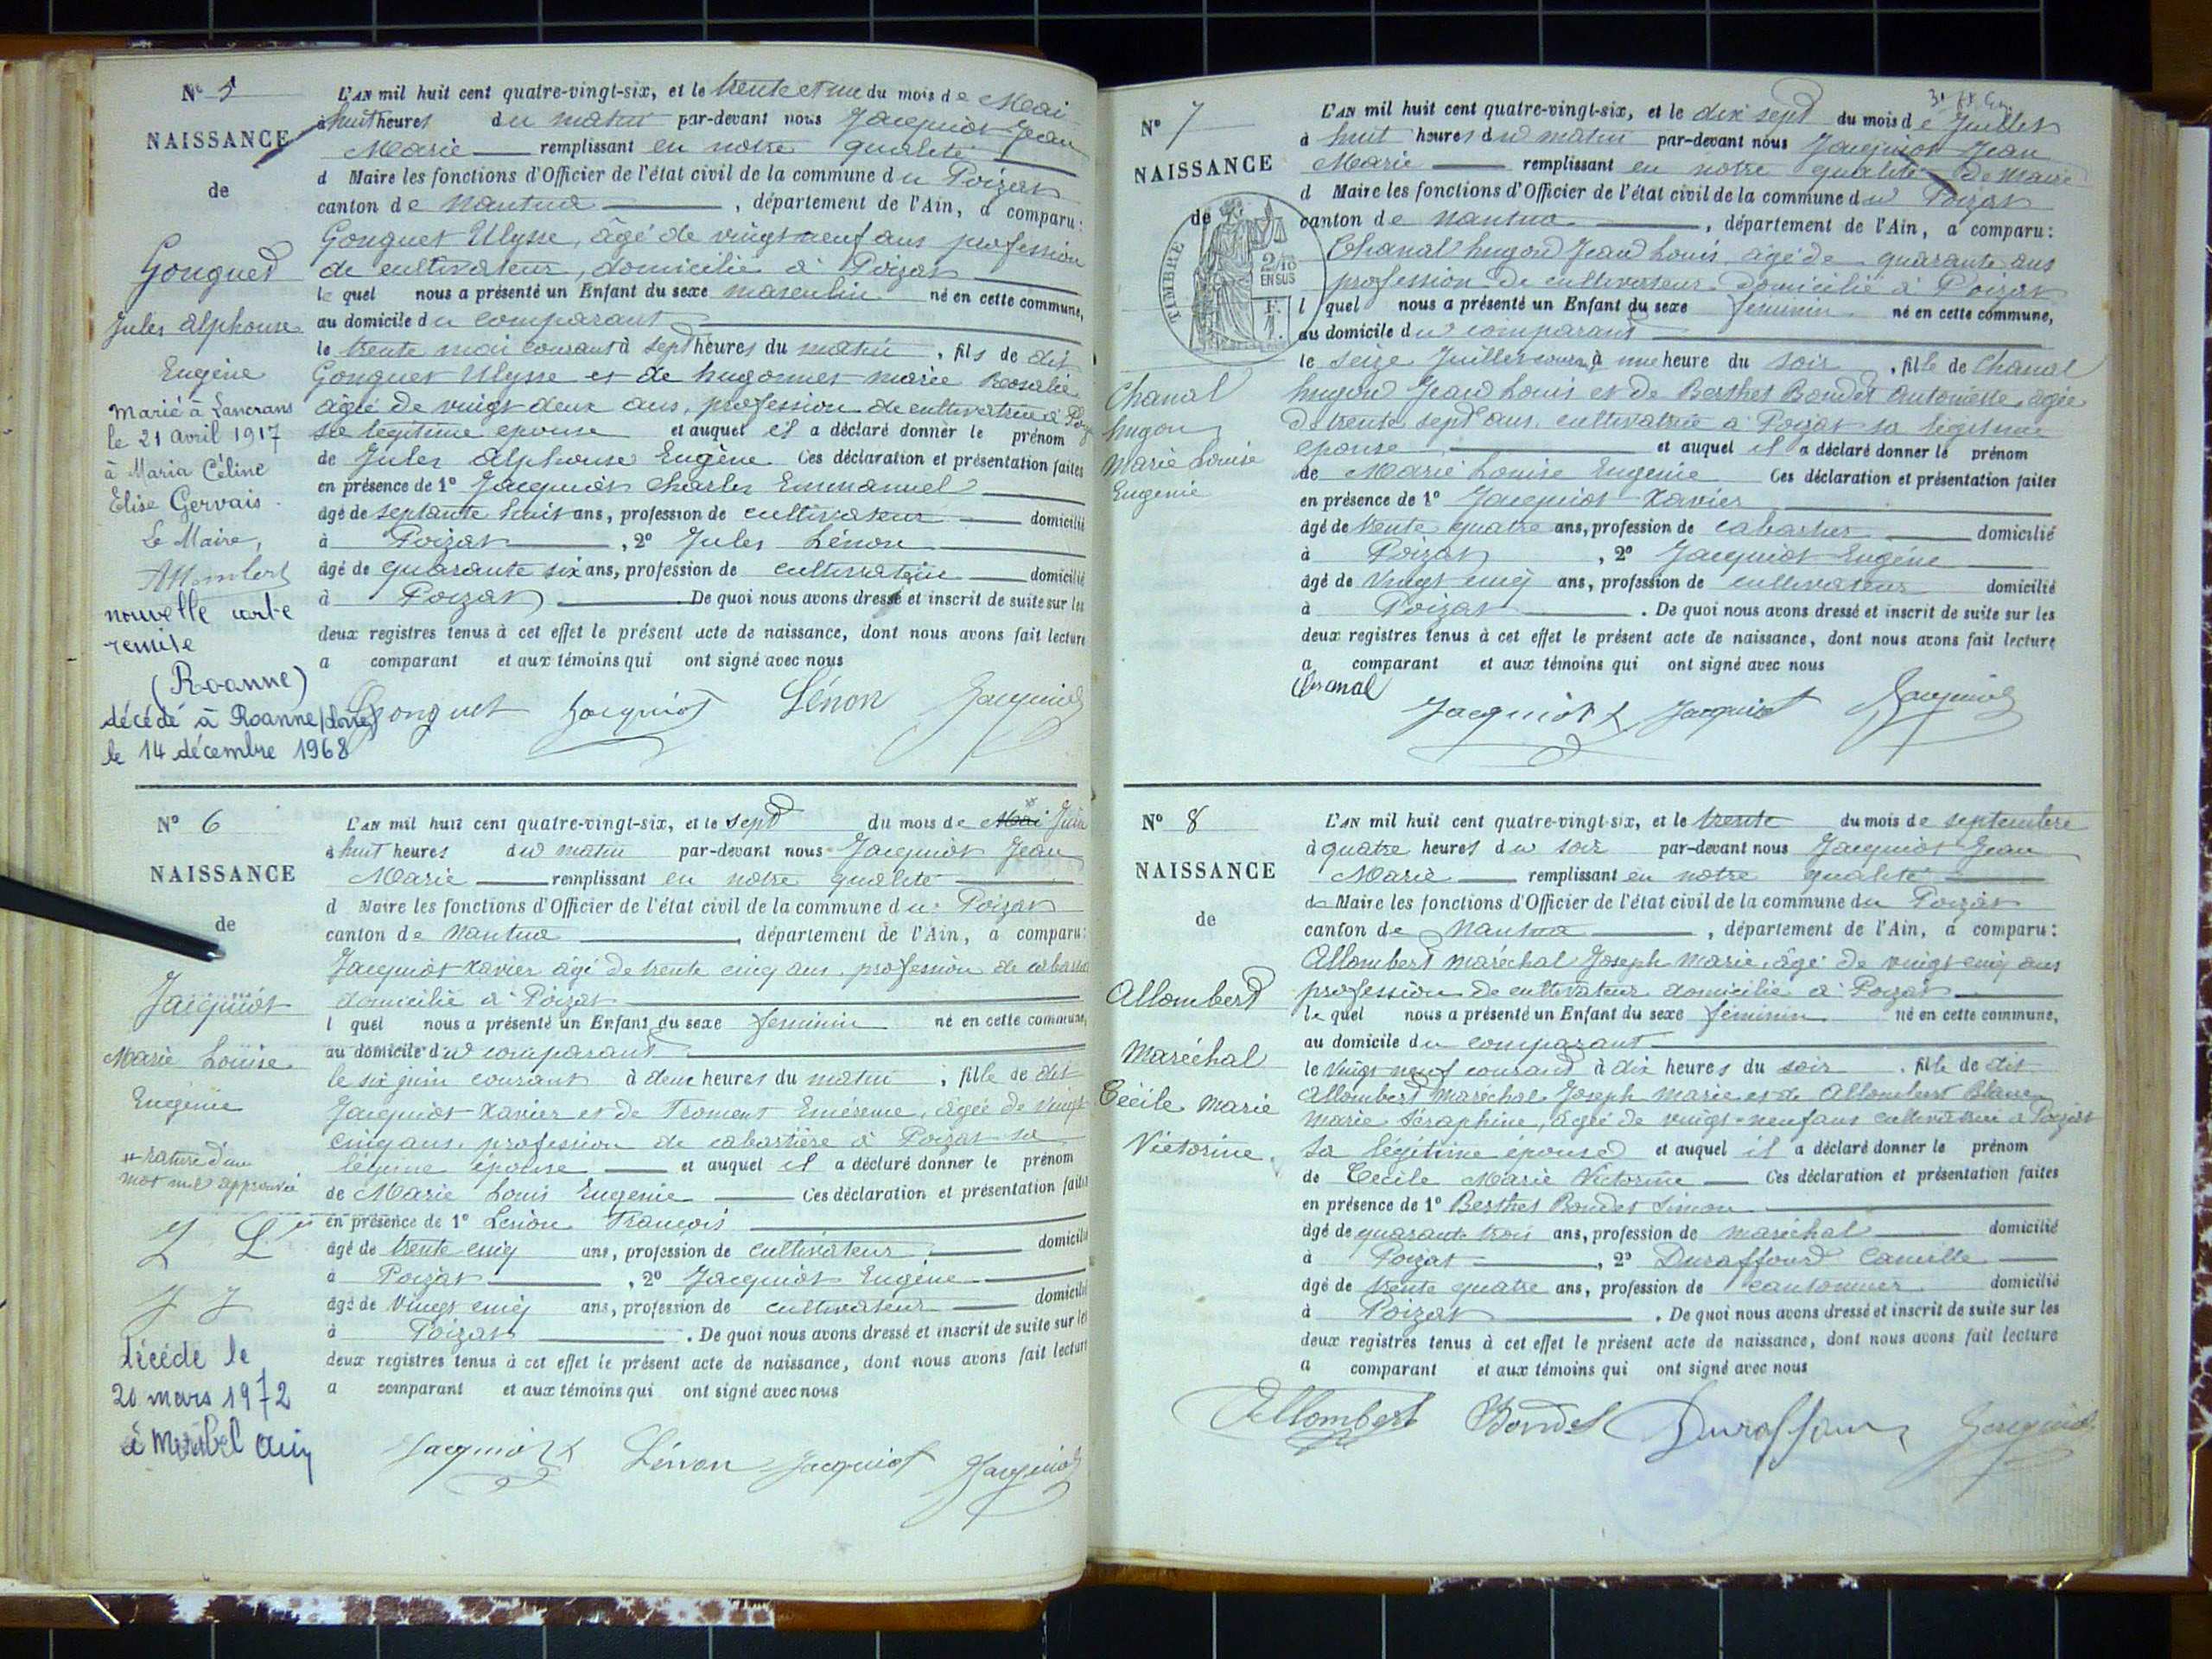 N° 5
NAISSANCE
de
Gonguet
Jules Alphonse
Eugène
Marié à Lancrans
le 21 avril 1917
à Maria Céline
Elise Gervais.
Le Maire,
nouvelle carte
remise
(Roanne)
décédé à Roanne (Loire)
le 14 décembre 1968
L'AN mil huit cent quatre-vingt-six, et le trente et un du mois de Mai
à huit heures du matin par-devant nous Jacquiot Jean
Marie remplissant en notre qualité
d Maire les fonctions d'Officier de l'état civil de la commune du Poizat
canton de Nantua, département de l'Ain, a comparu:
Gonguet Ulysse, âgé de vingt neuf ans profession
de cultivateur, domicilié à Poizat
le quel nous a présenté un Enfant du sexe masculin né en cette commune,
au domicile du comparant
le trente mai courant à sept heures du matin, fils de dit
Gonguet Ulysse et de hugonnet marie Rosalie
âgée de vingt deux ans, profession de cultivatrice à
sa légitime épouse et auquel il a déclaré donner le prénom
de Jules Alphonse Eugène Ces déclaration et présentation faites
en présence de 1° Jacquiot Charles Emmanuel
âgé de septante huit ans, profession de cultivateur domicilié
à Poizat, 2° Jules Lénon
âgé de quarante six ans, profession de cultivateur domicilié
à Poizat. De quoi nous avons dressé et inscrit de suite sur les
deux registres tenus à cet effet le présent acte de naissance, dont nous avons fait lecture
a comparant et aux témoins qui ont signé avec nous
Gonguet Jacquiot Lénon Jacquiot
N° 6
NAISSANCE
de
Jacquiot
Marie Louise
Eugénie
rature d'un
mot nul approuvée
J L
J J
décédé le
20 mars 1972
à Miribel Ain
L'AN mil huit cent quatre-vingt-six, et le sept du mois de Mai Juin
à huit heures du matin par-devant nous Jacquiot Jean
Marie remplissant en notre qualité
d Maire les fonctions d'Officier de l'état civil de la commune du Poizat
canton de Nantua, département de l'Ain, a comparu:
Jacquiot Xavier âgé de trente cinq ans, profession de
domicilié à Poizat
l quel nous a présenté un Enfant du sexe féminin né en cette commune,
au domicile du comparant
le six juin courant à deux heures du matin, fille de dit
Jacquiot Xavier et de Froment Emérence, âgée de vingt
cinq ans, profession de cabartière à Poizat sa
légitime épouse et auquel il a déclaré donner le prénom
de Marie Louis Eugenie Ces déclaration et présentation faites
en présence de 1° Lenon François
âgé de trente cinq ans, profession de cultivateur domicilié
à Poizat, 2° Jacquiot Eugène
âgé de vingt cinq ans, profession de cultivateur domicilié
à Poizat. De quoi nous avons dressé et inscrit de suite sur les
deux registres tenus à cet effet le présent acte de naissance, dont nous avons fait lecture
a comparant et aux témoins qui ont signé avec nous
Jacquiot X Lénon Jacquiot Jacquiot
N° 7
NAISSANCE
de
TIMBRE
2/10
EN SUS
Chanal
hugon
Marie Louise
Eugenie
L'AN mil huit cent quatre-vingt-six, et le dix sept du mois de Juillet
à huit heures du matin par-devant nous Jacquiot Jean
Marie remplissant en notre qualité de maire
d Maire les fonctions d'Officier de l'état civil de la commune du Poizat
canton de Nantua, département de l'Ain, a comparu:
Chanal hugon Jean Louis âgé de quarante ans
profession de cultivateur domicilié à Poizat
l quel nous a présenté un Enfant du sexe féminin né en cette commune,
au domicile du comparant
le seize Juillet courant à une heure du soir, fille de Chanal
hugon Jean Louis et de Berthet Bondet Antoinette, âgée
de trente sept ans, cultivatrice à Poizat sa légitime
épouse et auquel il a déclaré donner le prénom
de Marie Louise Eugenie Ces déclaration et présentation faites
en présence de 1° Jacquiot Xavier
âgé de trente quatre ans, profession de cabartier domicilié
à Poizat, 2° Jacquiot Eugène
âgé de vingt cinq ans, profession de cultivateur domicilié
à Poizat. De quoi nous avons dressé et inscrit de suite sur les
deux registres tenus à cet effet le présent acte de naissance, dont nous avons fait lecture
a comparant et aux témoins qui ont signé avec nous
Chanal
Jacquiot X Jacquiot Jacquiot
N° 8
NAISSANCE
de
Allombert
Maréchal
Cécile Marie
Victorine.
L'AN mil huit cent quatre-vingt-six, et le trente du mois de septembre
à quatre heures du soir par-devant nous Jacquiot Jean
Marie remplissant en notre qualité
de Maire les fonctions d'Officier de l'état civil de la commune du Poizat
canton de Nantua, département de l'Ain, a comparu:
Allombert maréchal Joseph Marie, âgé de vingt cinq ans
profession de cultivateur domicilié à Poizat
le quel nous a présenté un Enfant du sexe féminin né en cette commune,
au domicile du comparant
le vingt neuf courant à dix heures du soir. fille de dit
Allombert Maréchal Joseph Marie et de Allombert Blanc
Marie Séraphine, âgée de vingt-neuf ans cultivatrice à Poizat
sa légitime épouse et auquel il a déclaré donner le prénom
de Cécile Marie Victorine Ces déclaration et présentation faites
en présence de 1° Berthet Bondet Simon
âgé de quarante trois ans, profession de maréchal domicilié
à Poizat, 2° Duraffourd Camille
âgé de trente quatre ans, profession de cantonnier domicilié
à Poizat. De quoi nous avons dressé et inscrit de suite sur les
deux registres tenus à cet effet le présent acte de naissance, dont nous avons fait lecture
a comparant et aux témoins qui ont signé avec nous
Allombert Bondet Duraffour Jacquiot